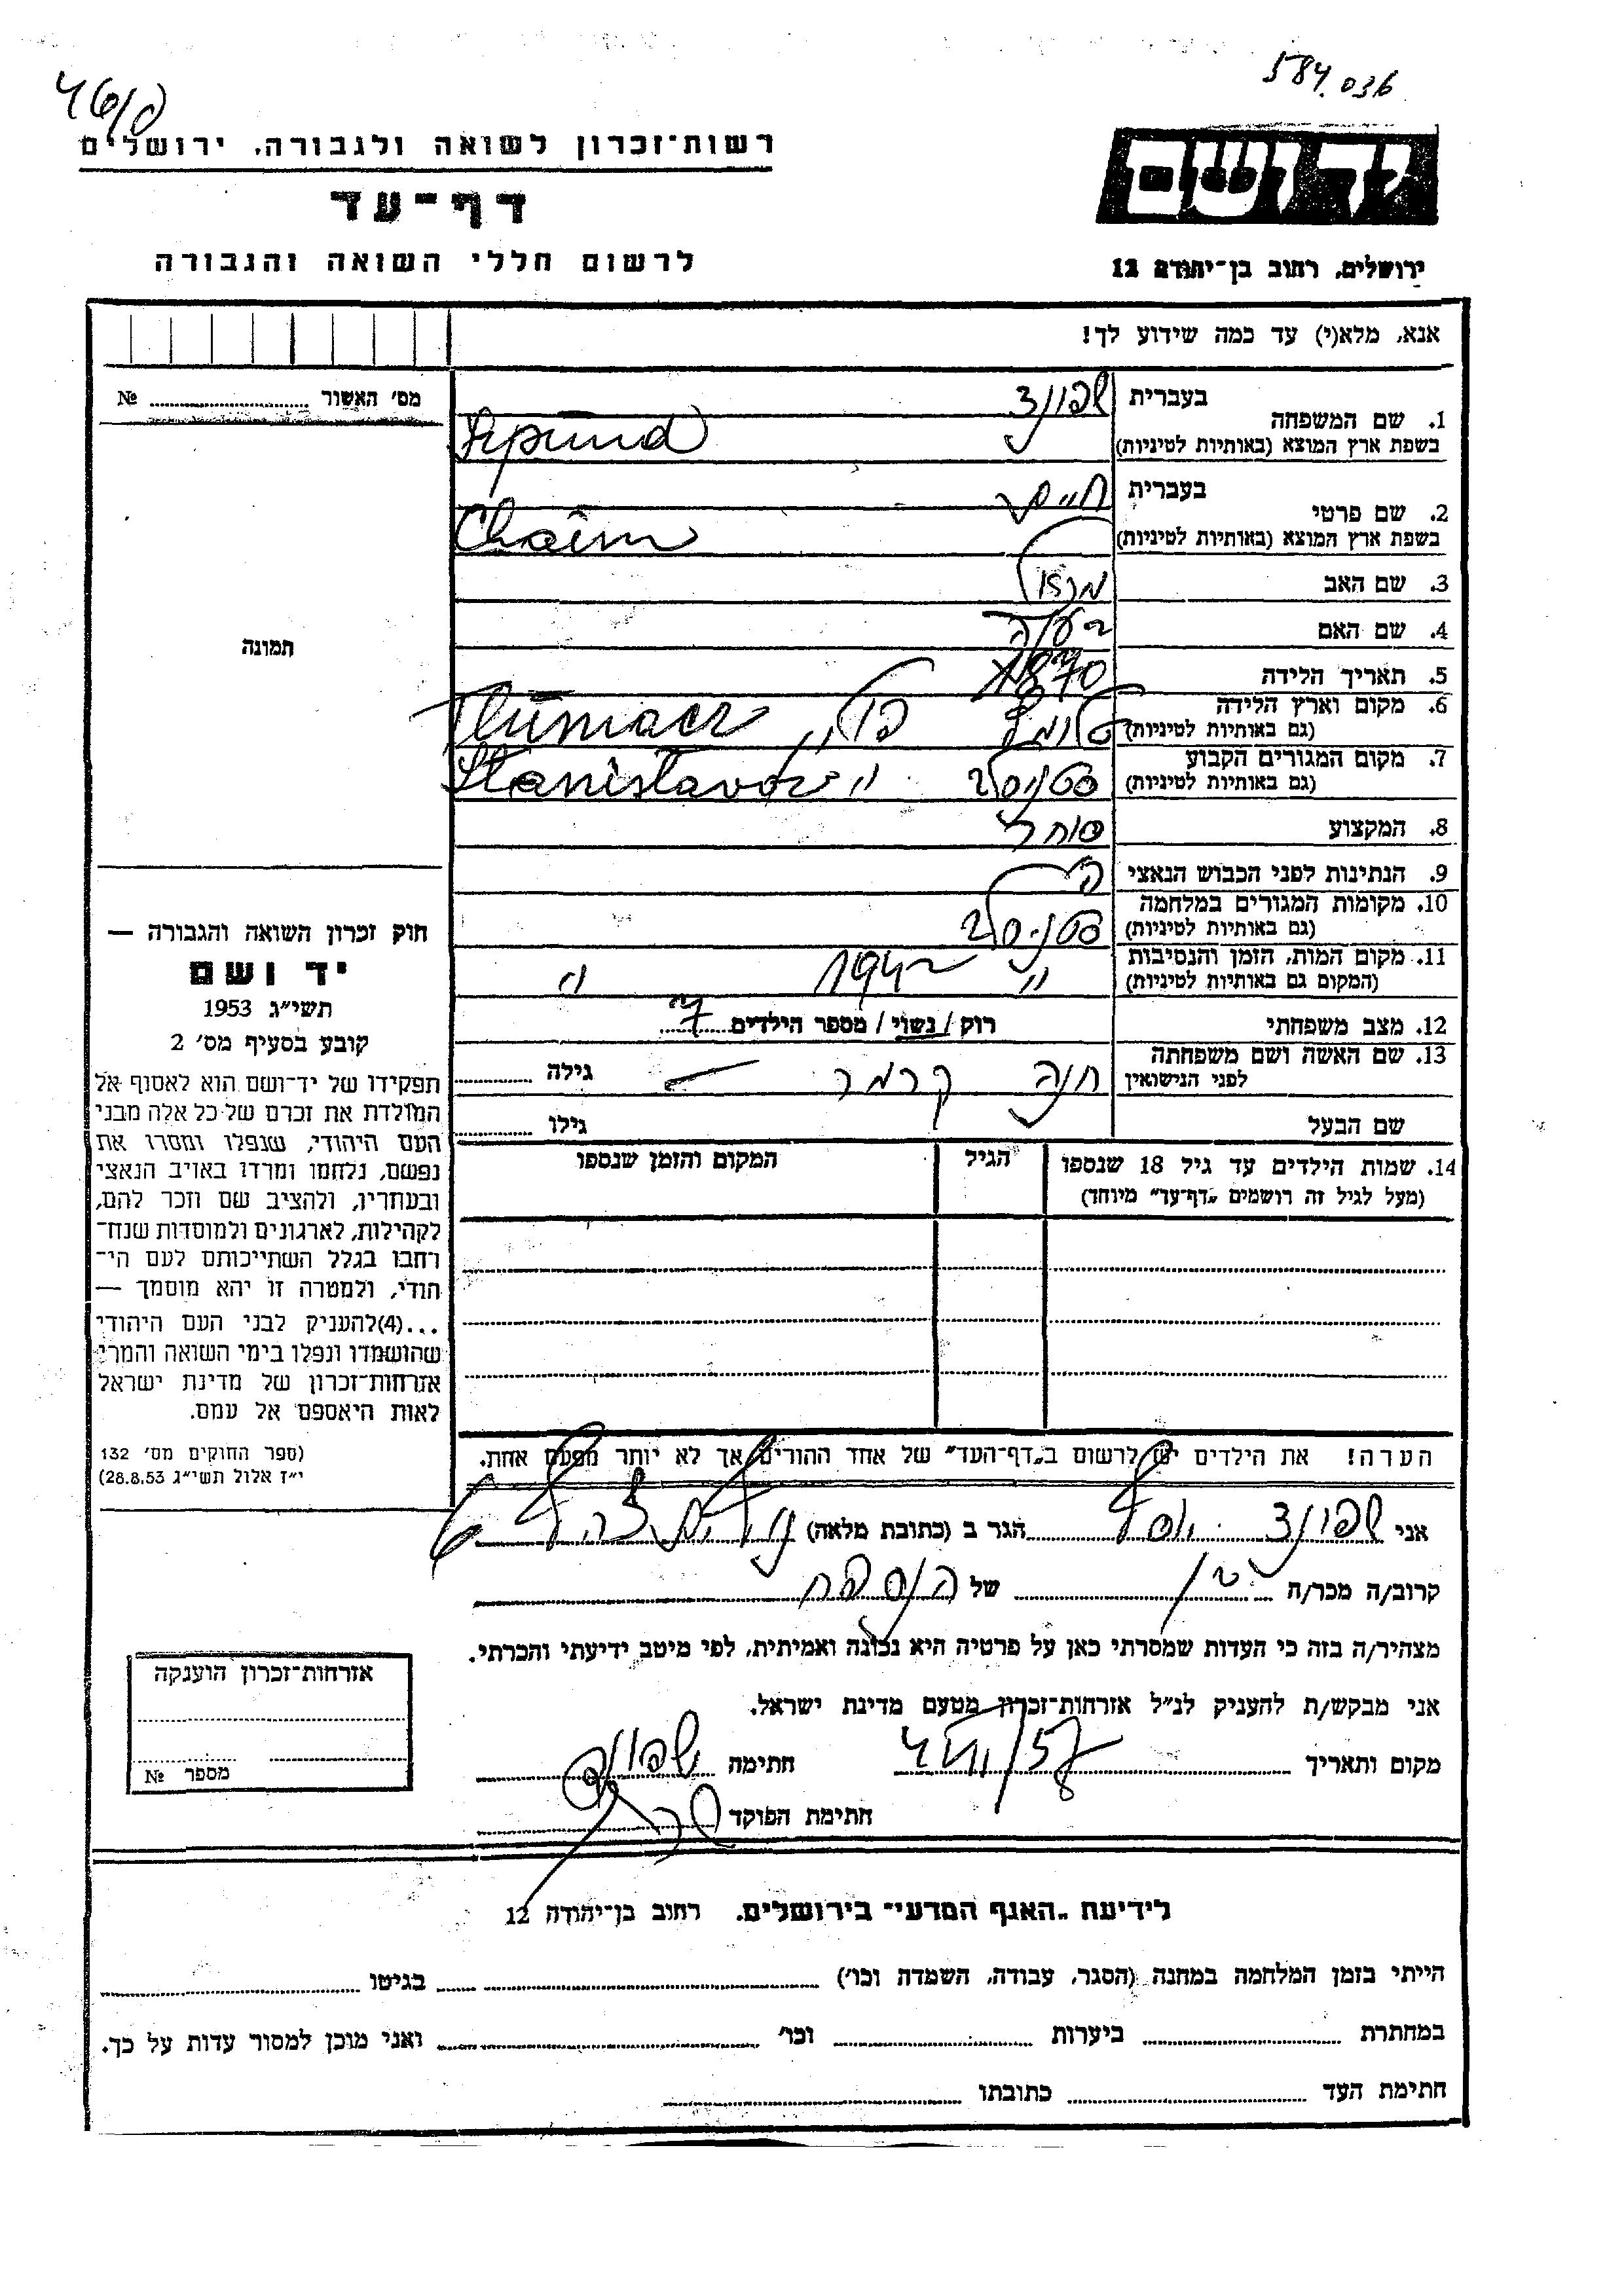 584.036
רשות־זכרון לשואה ולגבורה, ירושלים
דף־עד
לרשום חללי השואה והגבורה
יד ושם
ירושלים, רחוב בן־יהודה 12
אנא, מלא(י) עד כמה שידוע לך!
מס' האשור № 
1. שם המשפחה
בעברית שפונד
בשפת ארץ המוצא (באותיות לטיניות) Szpund
2. שם פרטי
בעברית חיים
בשפת ארץ המוצא (באותיות לטיניות) Chaim
3. שם האב
4. שם האם
5. תאריך הלידה 1870
6. מקום וארץ הלידה
(גם באותיות לטיניות) פולין Tlumacz
7. מקום המגורים הקבוע
(גם באותיות לטיניות) סטניסלב " Stanislavov
8. המקצוע סוחר
9. הנתינות לפני הכבוש הנאצי
10. מקומות המגורים במלחמה
(גם באותיות לטיניות) סטניסלב
11. מקום המות, הזמן והנסיבות
(המקום גם באותיות לטיניות) " 1942 "
12. מצב משפחתי רוק / נשוי / מספר הילדים 7
13. שם האשה ושם משפחתה
לפני הנישואין חנה קרמר גילה
שם הבעל גילו
14. שמות הילדים עד גיל 18 שנספו
(מעל לגיל זה רושמים „דף־עד" מיוחד)
הגיל
המקום והזמן שנספו
הערה! את הילדים יש לרשום ב„דף־העד" של אחד ההורים, אך לא יותר מפעם אחת.
תמונה
חוק זכרון השואה והגבורה —
יד ושם
תשי״ג 1953
קובע בסעיף מס' 2
תפקידו של יד־ושם הוא לאסוף אל
המולדת את זכרם של כל אלה מבני
העם היהודי, שנפלו ומסרו את
נפשם, נלחמו ומרדו באויב הנאצי
ובעוזריו, ולהציב שם וזכר להם,
לקהילות, לארגונים ולמוסדות שנח־
רחבו בגלל השתייכותם לעם הי־
הודי, ולמטרה זו יהא מוסמך —
...(4) להעניק לבני העם היהודי
שהושמדו ונפלו בימי השואה והמרי
אזרחות־זכרון של מדינת ישראל
לאות היאספם אל עמם.
(ספר החוקים מס' 132
י״ז אלול תשי״ג 28.8.53)
אני שפונד יוסף הגר ב (כתובת מלאה)
קרוב/ה מכר/ה בן של המנוח
מצהיר/ה בזה כי העדות שמסרתי כאן על פרטיה היא נכונה ואמיתית, לפי מיטב ידיעתי והכרתי.
אני מבקש/ת להעניק לנ״ל אזרחות־זכרון מטעם מדינת ישראל.
מקום ותאריך חתימה שפונד
חתימת הפוקד
אזרחות־זכרון הוענקה
מספר №
לידיעת „האגף המדעי" בירושלים, רחוב בן־יהודה 12
הייתי בזמן המלחמה במחנה (הסגר, עבודה, השמדה וכו') בגיטו
במחתרת ביערות וכו' ואני מוכן למסור עדות על כך.
חתימת העד כתובתו